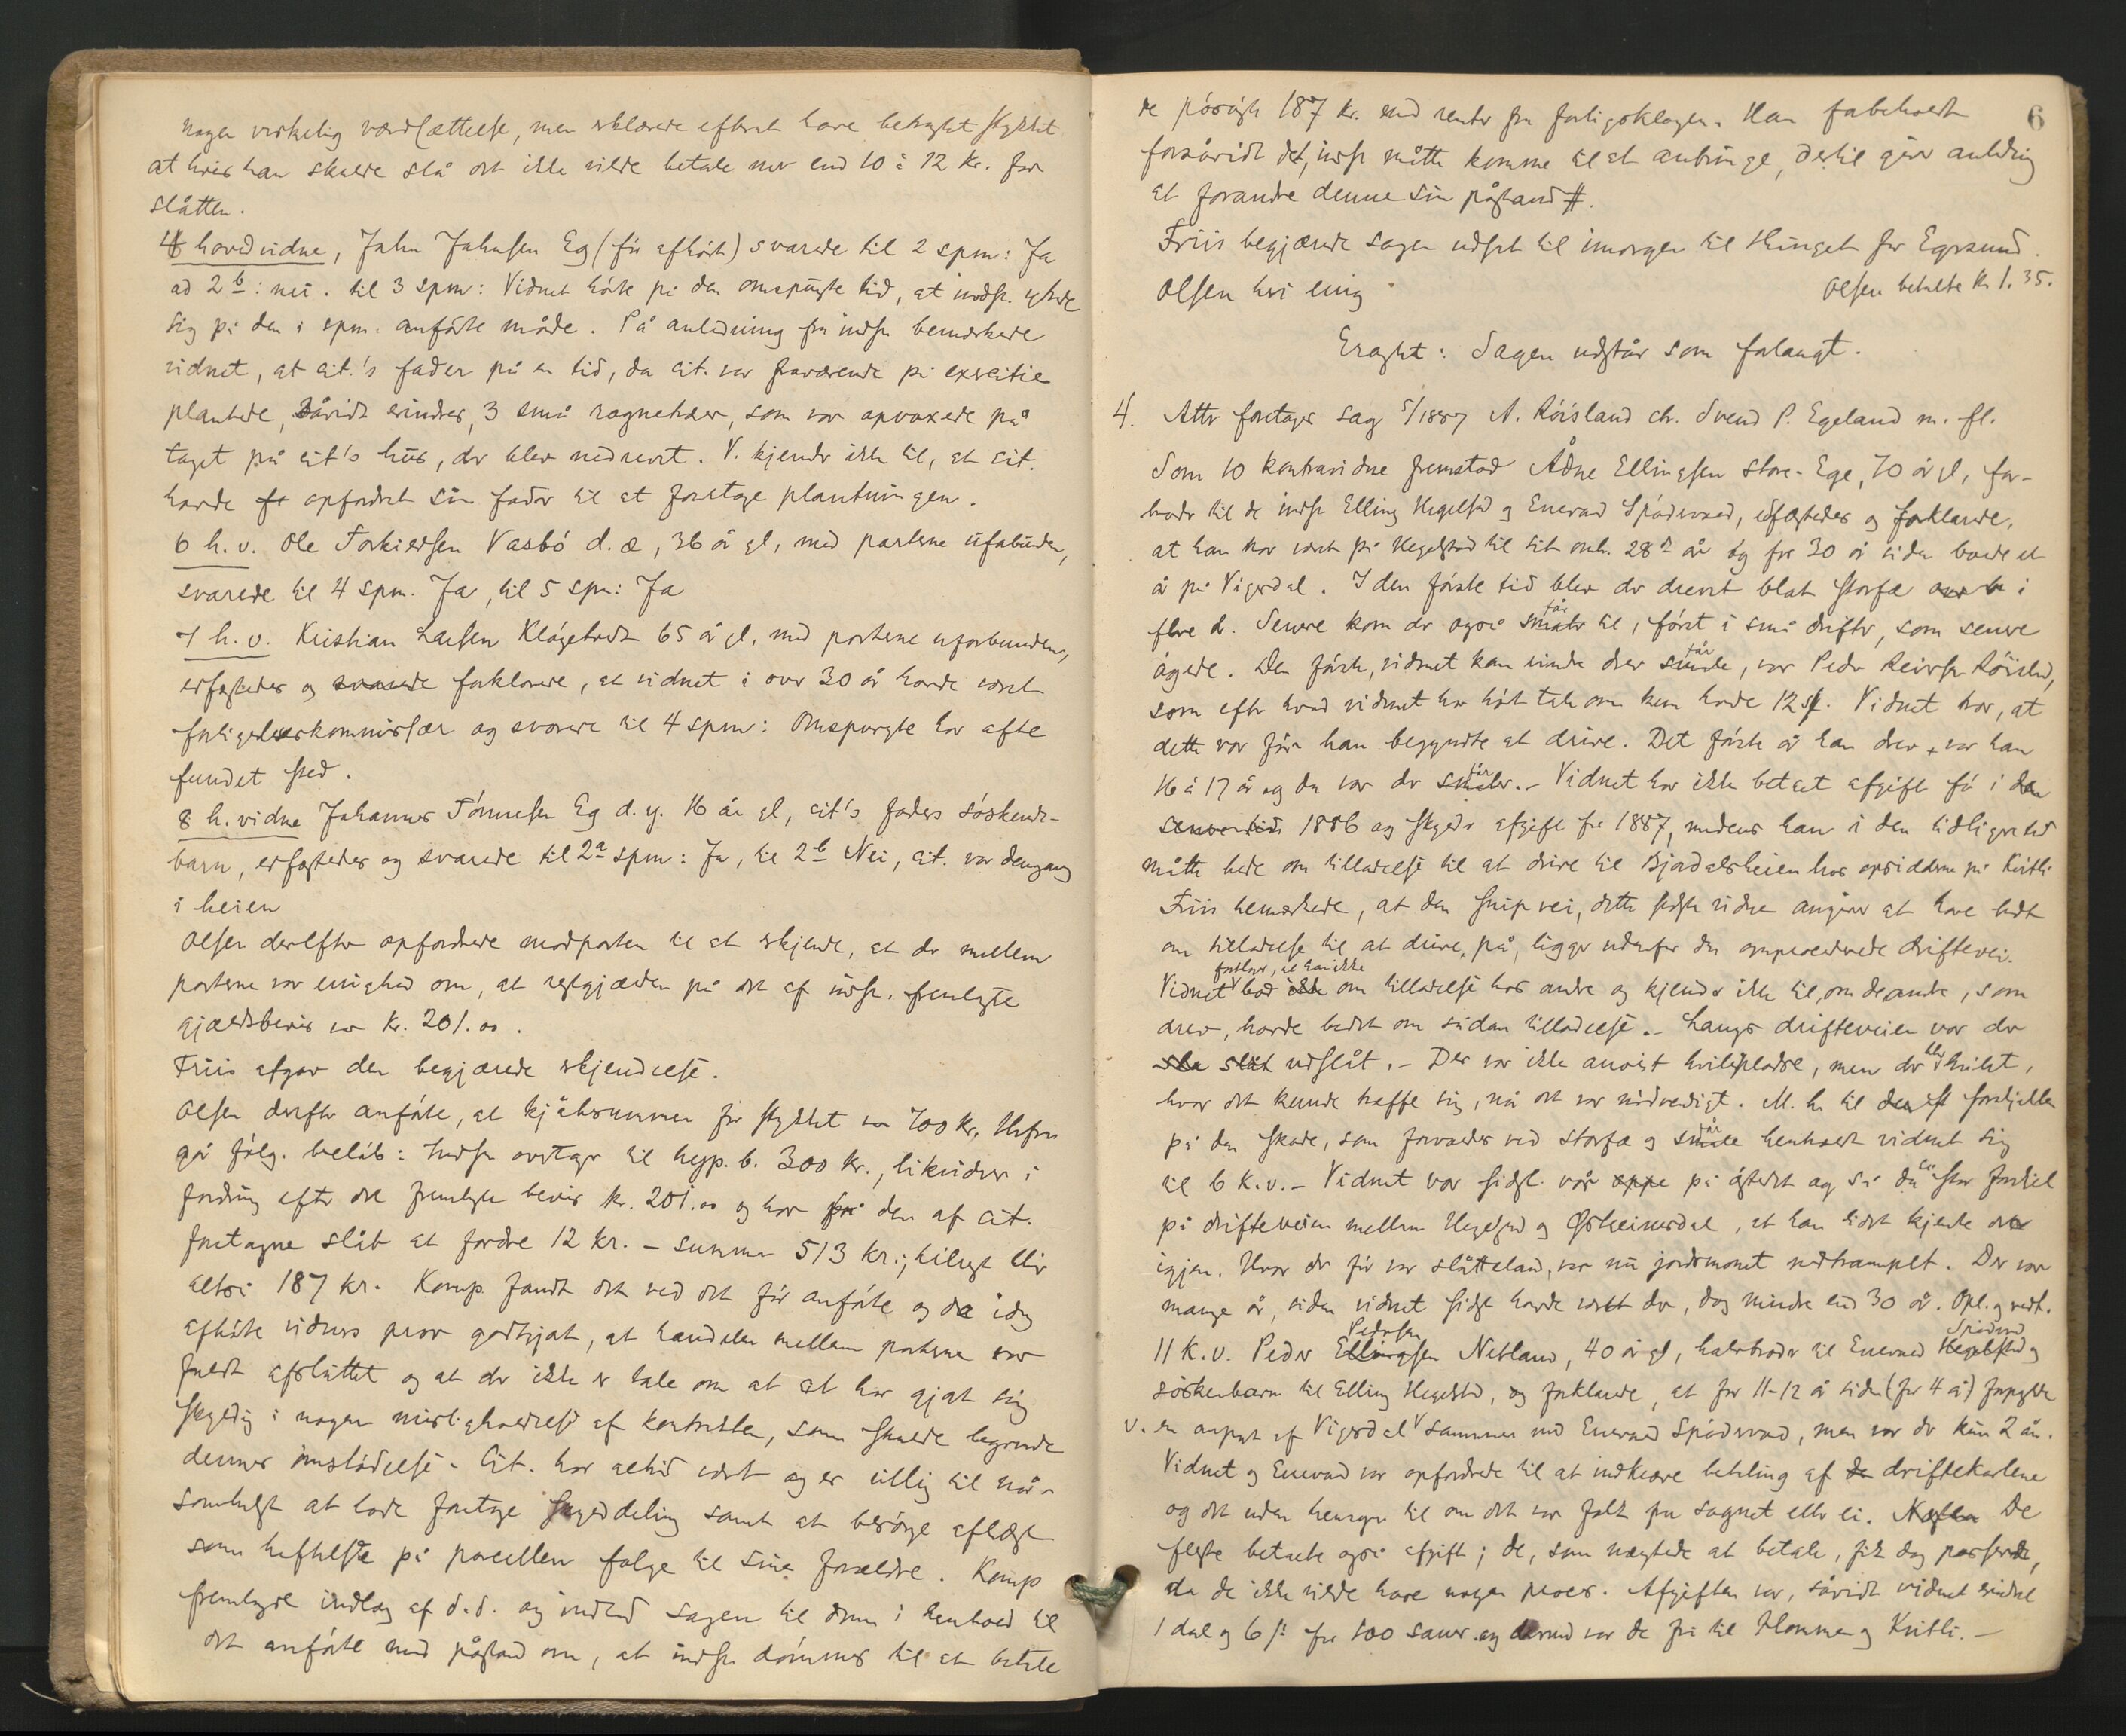 nogen virkelig værdsættelse, men erklærede efterat have betragtet stykket
at hvis han skulde slå det ikke vilde betale mer end 10 à 12 kr. for
slåtten.
4 hovedvidne, Jahn Jahnsen Eg (før afhørt) svarede til 2 spm: Ja
ad 2 b: nei. til 3 spm: Vidnet hørte på den omspurgte tid, at indst. ytrede
sig på den i spm. anførte måde. På anledning fra indst. bemærkede
vidnet, at cit.'s fader på en tid, da cit. var fraværende på exercitie
plantede, såvidt erindres, 3 små rognetræer, som var opvoxede på
taget på cit's hus, der blev nedrevet. V. kjender ikke til, at cit.
havde opfordret sin fader til at foretage plantningen.
6 h. v. Ole Torkielsen Vasbø d. æ, 36 år gl, med parterne uforbunden,
svarede til 4 spm. Ja, til 5 spm: Ja
7 h. v. Kristian Larsen Kløgetvedt 65 år gl, med parterne uforbunden,
edfæstedes og svarede forklarede, at vidnet i over 30 år havde været
forligelseskommissær og svarede til 4 spm: Omspurgte har ofte
fundet sted.
8 h. vidne Johannes Tønnesen Eg d. y. 46 år gl, cit's faders søskende-
barn, edfæstedes og svarede til 2 a spm: Ja, til 2 b Nei, cit. var dengang
i heien
Olsen derefter opfordrede modparten til at erkjende, at der mellem
parterne var enighed om, at restgjælden på det af indst. fremlagte
gjældsbevis var kr. 201.00.
Friis afgav den begjærede erkjendelse.
Olsen derefter anførte, at kjøbesummen for stykket var 700 kr. Herfra
går følg. beløb: Indst. overtager til hyp. b. 300 kr., likviderer i
fordring efter det fremlagte bevis kr. 201.00 og har for den af cit.
foretagne slåt at fordre 12 kr. – summa 513 kr.; tilrest blir
altså 187 kr. Komp. fandt det ved det før anførte og de idag
afhørte vidners prov godtgjort, at handelen mellem parterne var
fuldt afsluttet og at der ikke er tale om at cit. har gjort sig
skyldig i nogen misligholdelse af kontrakten, som skulde begrunde
dennes omstødelse. Cit. har altid været og er villig til når-
somhelst at lade foretage skylddeling samt at besørge aflæst
som heftelse på parcellen følge til sine forældre. Komp
fremlagde indlæg af d. d. og indlod sagen til doms i henhold til
det anførte med påstand om, at indst. dømmes til at betale
6
de påsøgte 187 kr. med renter fra forligsklagen. Han forbeholdt
forsåvidt det, indst. måtte komme til at anbringe, dertil giver anledning
at forandre denne sin påstand #.
Friis begjærede sagen udsat til imorgen til thinget for Egersund.
Olsen heri enig
Olsen betalte kr 1. 35.
Eragtet: Sagen udstår som forlangt.
4. Atter foretages sag 5/1887 A. Røisland ctr. Svend P. Egeland m. fl.
Som 10 kontravidne fremstod Ådne Ellingsen Store-Ege, 70 år gl, far-
broder til de indst. Elling Hegelstad og Enevald Spødervold, edfæstedes og forklarede,
at han har været på Hegelstad til sit omtr. 28de år og for 30 år siden boede et
år på Vigerdal. I den første tid blev der drevet blot storfæ i
flere år. Senere kom der også får til, først i små drifter, som senere
øgede. Den første, vidnet kan erindre drev får, var Peder Reiersen Røisland,
som efter hvad vidnet har hørt tale om kun havde 12 st. Vidnet tror, at
dette var før han begyndte at drive. Det første år han drev, var han
16 à 17 år og da var der får. – Vidnet har ikke betalt afgift før i
1886 og skyldr afgift for 1887, medens han i den tidligere tid
måtte bede om tilladelse til at drive til Bjordalsheien hos opsidderne på Kvitli
Friis bemærkede, at den strip vei, dette sidste vidne angiver at have bedt
om tilladelse til at drive på, ligger udenfor den omprocederede driftevei.
Vidnet forklarer, at han ikke bad om tilladelse hos andre og kjender ikke til, om de andre, som
drev, havde bedet om sådan tilladelse. – Langs drifteveien var der
udslåt. – Der var ikke anvist hvilepladse, men der blev hvilt,
hvor det kunde træffe sig, når det var nødvendigt. M. h. til forskjellen
på den skade, som forvoldes ved storfæ og får henholdt vidnet sig
til 6 k. v. – Vidnet var sidst. vår på åstedet og så da en stor forskjel
på drifteveien mellem Hegelstad og Østeimerdal, at han lidet kjendte det
igjen. Hvor der før var slåtteland, var nu jordsmonet nedtrampet. Der var
mange år, siden vidnet sidst havde været der, dog mindre end 30 år. Opl. og vedt.
11 K. v. Peder Pedersen Netland, 40 år gl, halvbroder til Enevald Spødervold og
søskenbarn til Elling Hegelstad, og forklarede, at for 11-12 år siden (for 4 år) forpagtede
v. en anpart af Vigerdal sammen med Enevald Spødervold, men var der kun 2 år.
Vidnet og Enevald var opfordrede til at indkræve betaling af driftekarlene
og det uden hensyn til om det var folk fra sognet eller ei. De
fleste betalte også afgift; de, som nægtede at betale, fik dog passere,
da de ikke vilde have nogen proces. Afgiften var, såvidt vidnet erindrer
1 dal og 6 ß for 100 sauer og dermed var de fri til Homme og Kvitli. –